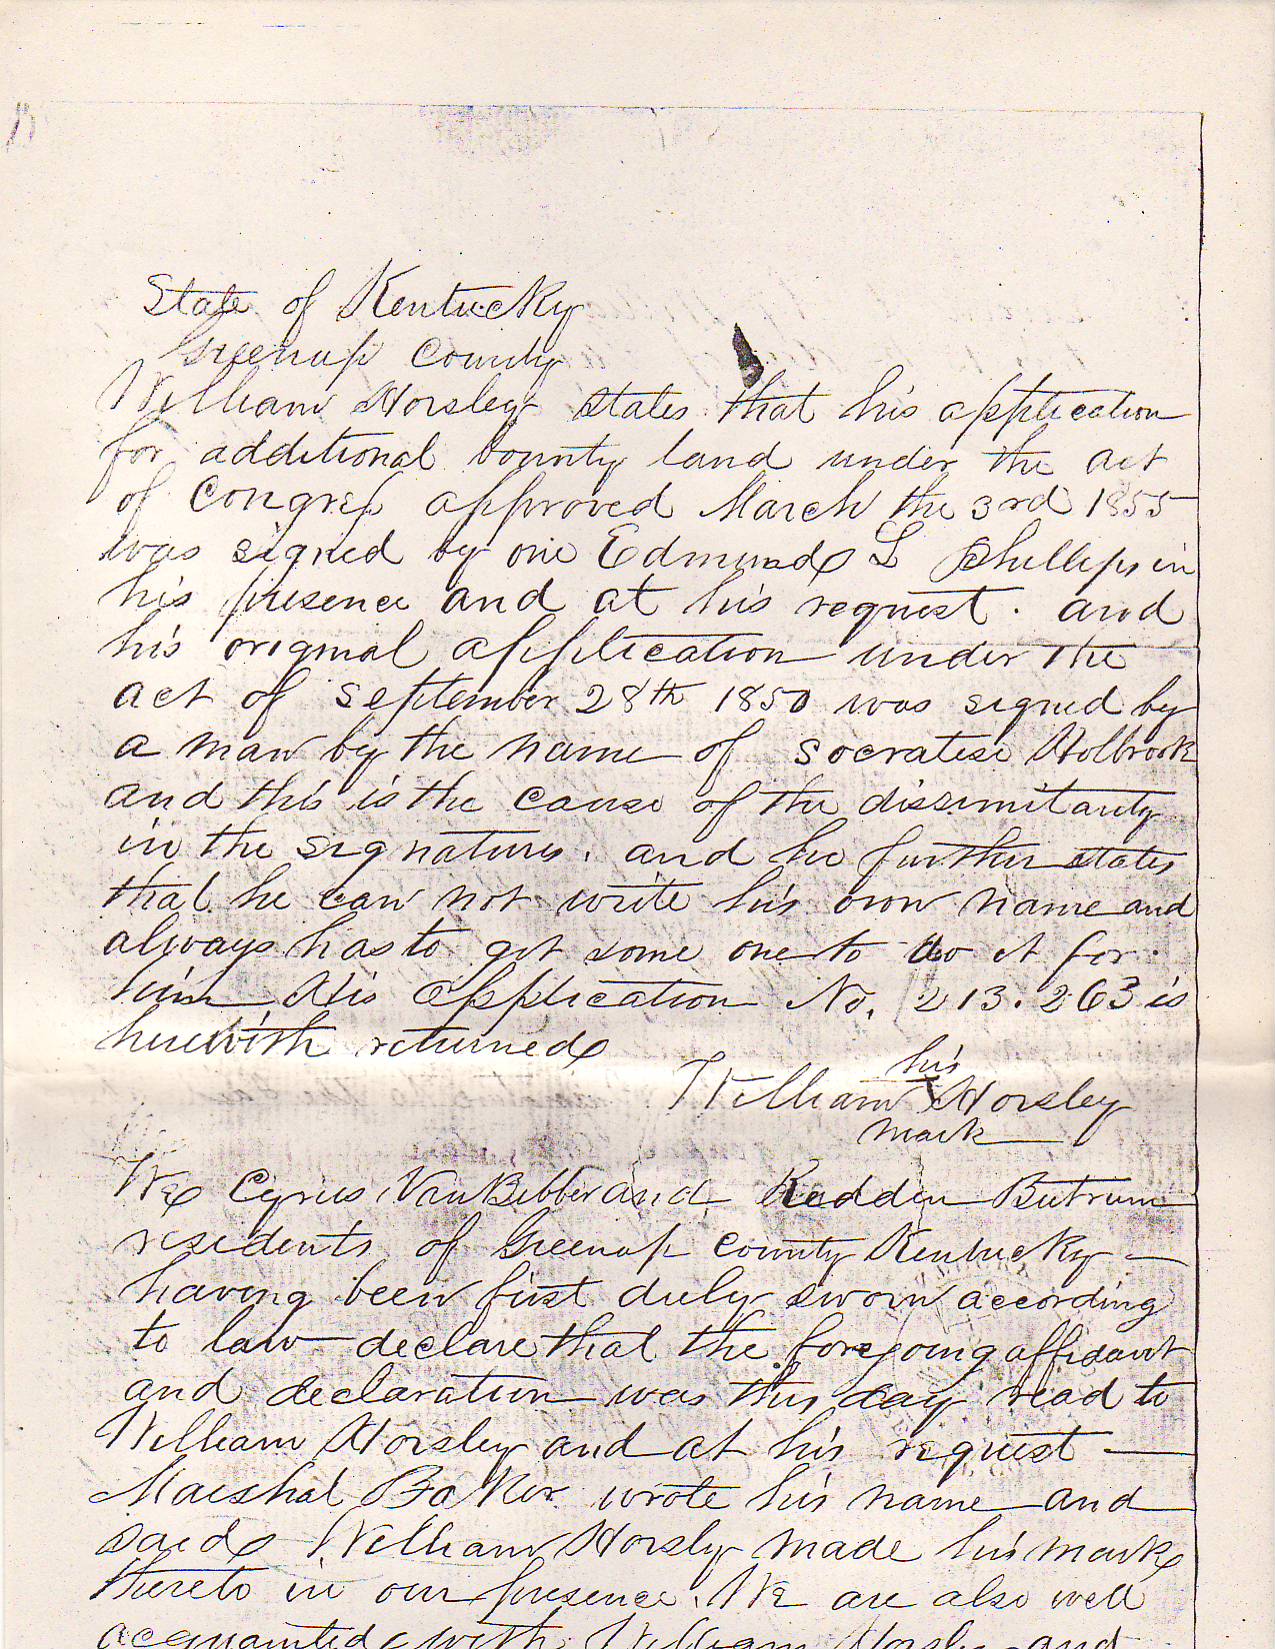 State of Kentucky
Greenup County
William Horsley states that his application
for additional bounty land under the act
of Congress approved March the 3rd 1855
was signed by one Edmund L Phillips in
his presence and at his request. and
his original application under the
act of September 28th 1850 was signed by
a man by the name of Socratese Holbrook
and this is the cause of the dissimilarity
in the signatures. and he further states
that he can not write his own name and
always has to get some one to do it for
him His application No. 213.263 is
herewith returned
his
William X Horsley
mark
We Cyrus VanBibber and Redden Butrum
residents of Greenup County Kentucky
having been first duly sworn according
to law declare that the foregoing affidavit
and declaration was this day read to
William Horsley and at his request
Marshal Baker wrote his name and
said William Horsly made his mark
thereto in our presence. We are also well
acquainted with William Horsley and